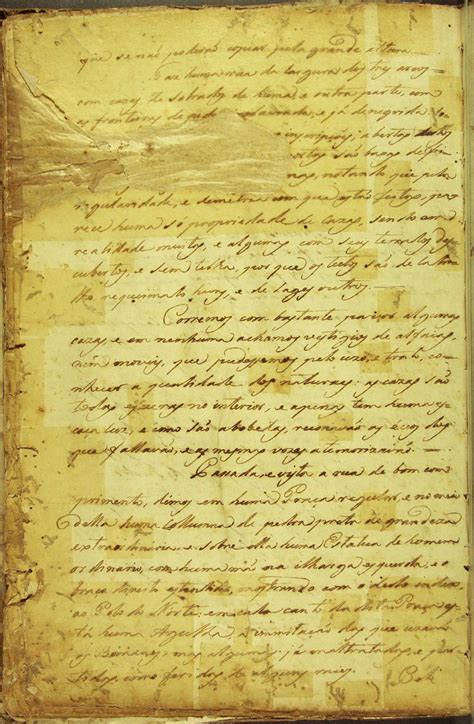 que se não poderão copiar pela grande altura.
Faz huma rua da largura dos tres arcos
com cazas de sobrados de huma e outra parte, com
as fronteiras de pedra lavrada, e já denegrida
inscripçoens, abertas todas
portas são baxas de
nas, notando que pela
regularidade, e semetria com que estão feitas, pa
rece huma só propriedade de cazas, sendo com
realidade muitas, e algumas com seus terrados des
cubertos, e sem telha, por que os tectos são de la
lho requeimado huns, e de lages outros.
Corremos com bastante pavor algumas
cazas, e em nenhuma achamos vestigios de alfaias,
nem moveis, que pudessemos pelo uzo, e trato, co
nhecer a qualidade dos naturaes: as cazas são
todas escuras no interior, e apenas tem huma es
caça luz, e como são abobedas, resoavão os ecos dos
que fallavão, e as mesmas vozes atemorizavão.
Passada e vista a rua de bom com
primento, demos em huma Praça regular, e no meio
della huma collumna de pedra preta de grandeza
extraordinaria, e sobre ella huma Estatua de homem
ordinario, com huma mão na ilharga esquerda, e o
braço direito estendido, mostrando com o dedo index
ao Polo do Norte: em cada canto da dita Praça es
tá huma Agulha, a imitação das que uzavão
os Romanos, mas algumas já maltratadas, e par
tidas, como feridas de alguns raios.